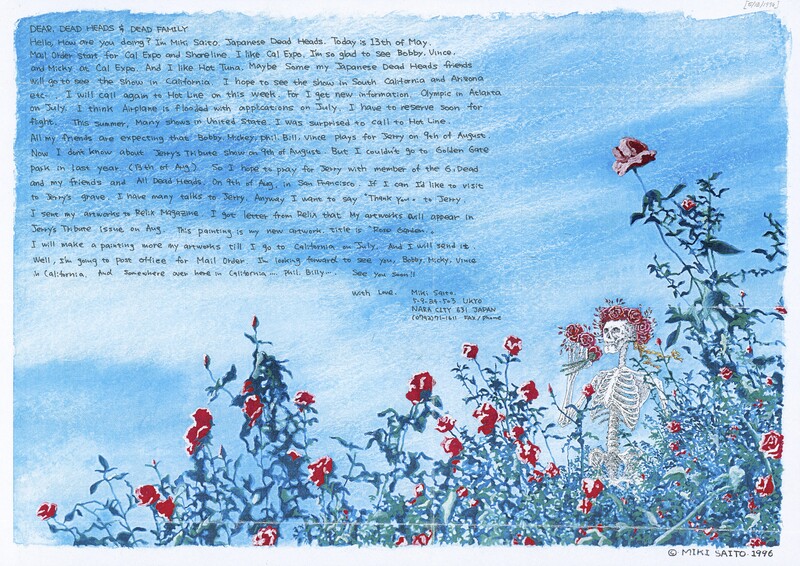 DEAR, DEAD HEADS & DEAD FAMILY
Hello, How are you doing? I'm Miki Saito, Japanese Dead Heads. Today is 13th of May.
Mail Order start for Cal Expo and Shoreline. I like Cal Expo. I'm so glad to see Bobby, Vince,
and Micky at Cal Expo. And I like Hot Tuna. Maybe Some my Japanese Dead Heads friends
will go to see the show in California. I hope to see the show in South California and Arizona
etc... I will call again to Hot Line on this week. For I get new information. Olympic in Atlanta
on July. I think Airplane is flooded with applications on July. I have to reserve soon for
flight. This summer, Many shows in United State. I was surprised to call to Hot Line.
All my friends are expecting that Bobby, Mickey, Phil, Bill, Vince plays for Jerry on 9th of August
Now I don't know about Jerry's Tribute show on 9th of August. But I couldn't go to Golden Gate
park in last year. (13th of Aug). So I hope to pray for Jerry with member of the G.Dead
and my friends and All Dead Heads. On 9th of Aug, in San Francisco. If I can I'd like to visit
to Jerry's grave. I have many talks to Jerry. Anyway I want to say "Thank You" to Jerry
I sent my artworks to Relix Magazine. I got letter from Relix that My artworks will appear in
Jerry's Tribute issue on Aug. This painting is my new artwork. title is "Rose Garden".
I will make a painting more my artworks till I go to California on July. And I will send it.
Well, I'm going to post office for Mail Order. I'm looking forward to see you, Bobby, Micky, Vince
in California. And Somewhere over here in California.... Phil, Billy.... See you soon!!
with Love. Miki Saito.
NARA CITY 631 JAPAN
FAX/Phone
© MIKI SAITO. 1996